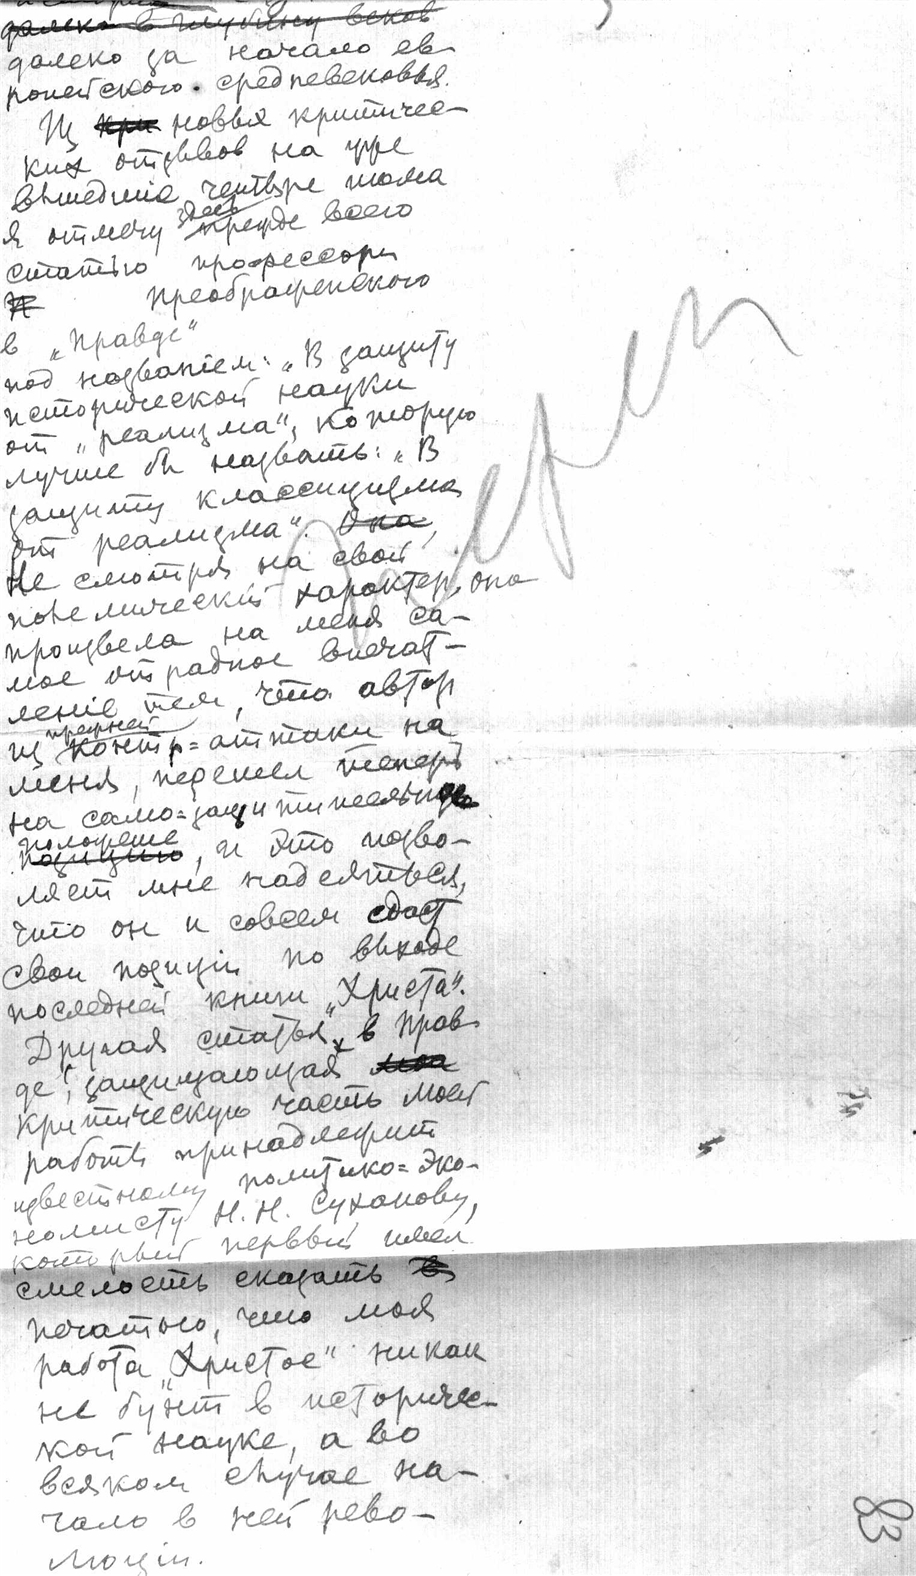 далеко в глубину веков
далеко за начало ев-
ропейского средневековья.
Из кри новых критичес-
ких отзывов на уже
вышедшие четыре тома
я отмечу здесь прежде всего
статью профессора
Преображенского
в „Правде“
под названіем: „В защиту
исторической науки
от „реализма“, которую
лучше бы назвать: „В
защиту классицизма
от реализма“. Она,
Не смотря на свой
полемическій характер, она
произвела на меня са-
мое отрадное впечат-
леніе тем, что автор
из прежней контр=аттаки на
меня, перешел теперь
на само=защитительное
положение позицию, и это позво-
ляет мне надеяться,
что он и совсем сдаст
свои позиціи по выходе
последней книги „Христа“.
Другая статья „в Прав-
де“, защищающая мою
критическую часть моей
работы принадлежит
известному политико=эко-
номисту Н. Н. Суханову,
который первый имел
смелость сказать в
печатью, что моя
работа „Христос“ никак
не бунт в историчес-
кой науке, а во
всяком случае на-
чало в ней рево-
люціи.
83